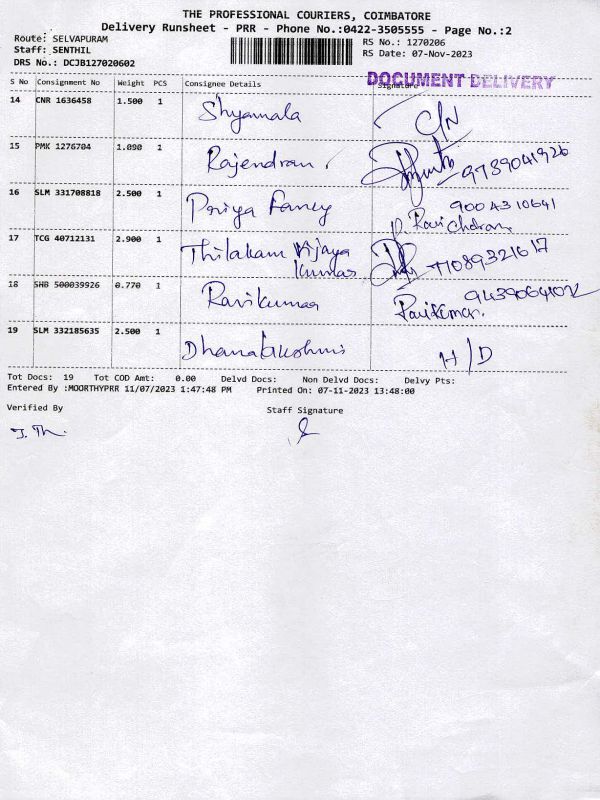 THE PROFESSIONAL COURIERS, COIMBATORE
Delivery Runsheet - PRR - Phone No.:0422-3505555 - Page No.:2
Route: SELVAPURAM
RS No.: 1270206
Staff: SENTHIL
RS Date: 07-Nov-2023
DRS No.: DCJB127020602
DOCUMENT DELIVERY
S No Consignment No Weight PCS Consignee Details Signature
14 CNR 1636458 1.500 1 Shyamala C/N
15 PMK 1276704 1.090 1 Rajendran 9789041926
16 SLM 331708818 2.500 1 Priya Fancy 9004310641
P. Ravichdran
17 TCG 40712131 2.900 1 Thilakam Vijaya
Kumar
18 SHB 500039926 0.770 1 Ravikumar
Ravikumar.
19 SLM 332185635 2.500 1 Dhanalakshmi H/D
Tot Docs: 19 Tot COD Amt: 0.00 Delvd Docs: Non Delvd Docs: Delvy Pts:
Entered By :MOORTHYPRR 11/07/2023 1:47:48 PM Printed On: 07-11-2023 13:48:00
Verified By Staff Signature